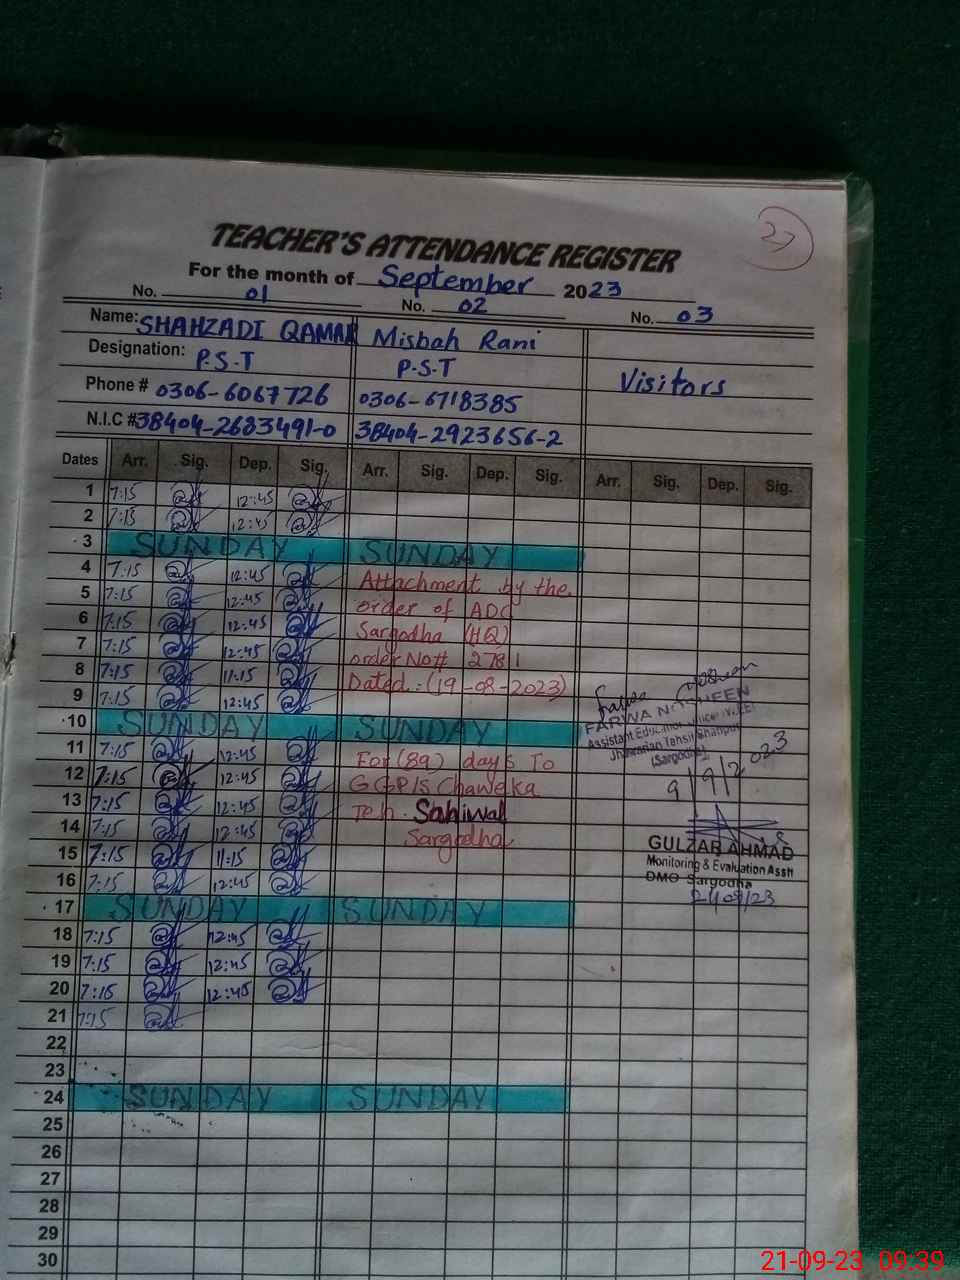 27
TEACHER'S ATTENDANCE REGISTER
For the month of September 2023
No. 01 No. 02 No. 03
Name: SHAHZADI QAMAR Misbah Rani
Designation: P.S.T P.S.T Visitors
Phone # 0306-6067726 0306-6718385
N.I.C # 38404-2683491-0 38404-2923656-2
Dates Arr. Sig. Dep. Sig. Arr. Sig. Dep. Sig. Arr. Sig. Dep. Sig.
1 7:15 12:45
2 7:15 12:45
3 SUNDAY SUNDAY
4 7:15 12:45 Attachment by the
5 7:15 12:45 order of ADC
6 7:15 12:45 Sargodha (HQ)
7 7:15 12:45 order No# 2781
8 7:15 11:15 Dated: (19-08-2023)
9 7:15 12:45
FARWA NOSHEEN
Assistant Education Officer
Tehsil Shahpur
(Sargodha)
9/9/2023
10 SUNDAY SUNDAY
11 7:15 12:45 For (89) days To
12 7:15 12:45 GGP/S Chaweka
13 7:15 12:45 Teh. Sahiwal
14 7:15 12:45 Sargodha
15 7:15 11:15
16 7:15 12:45
GULZAR AHMAD
Monitoring & Evaluation Asstt
DMO Sargodha
21/09/23
17 SUNDAY SUNDAY
18 7:15 12:45
19 7:15 12:45
20 7:15 12:45
21 7:15
22
23
24 SUNDAY SUNDAY
25
26
27
28
29
30
21-09-23 09:39